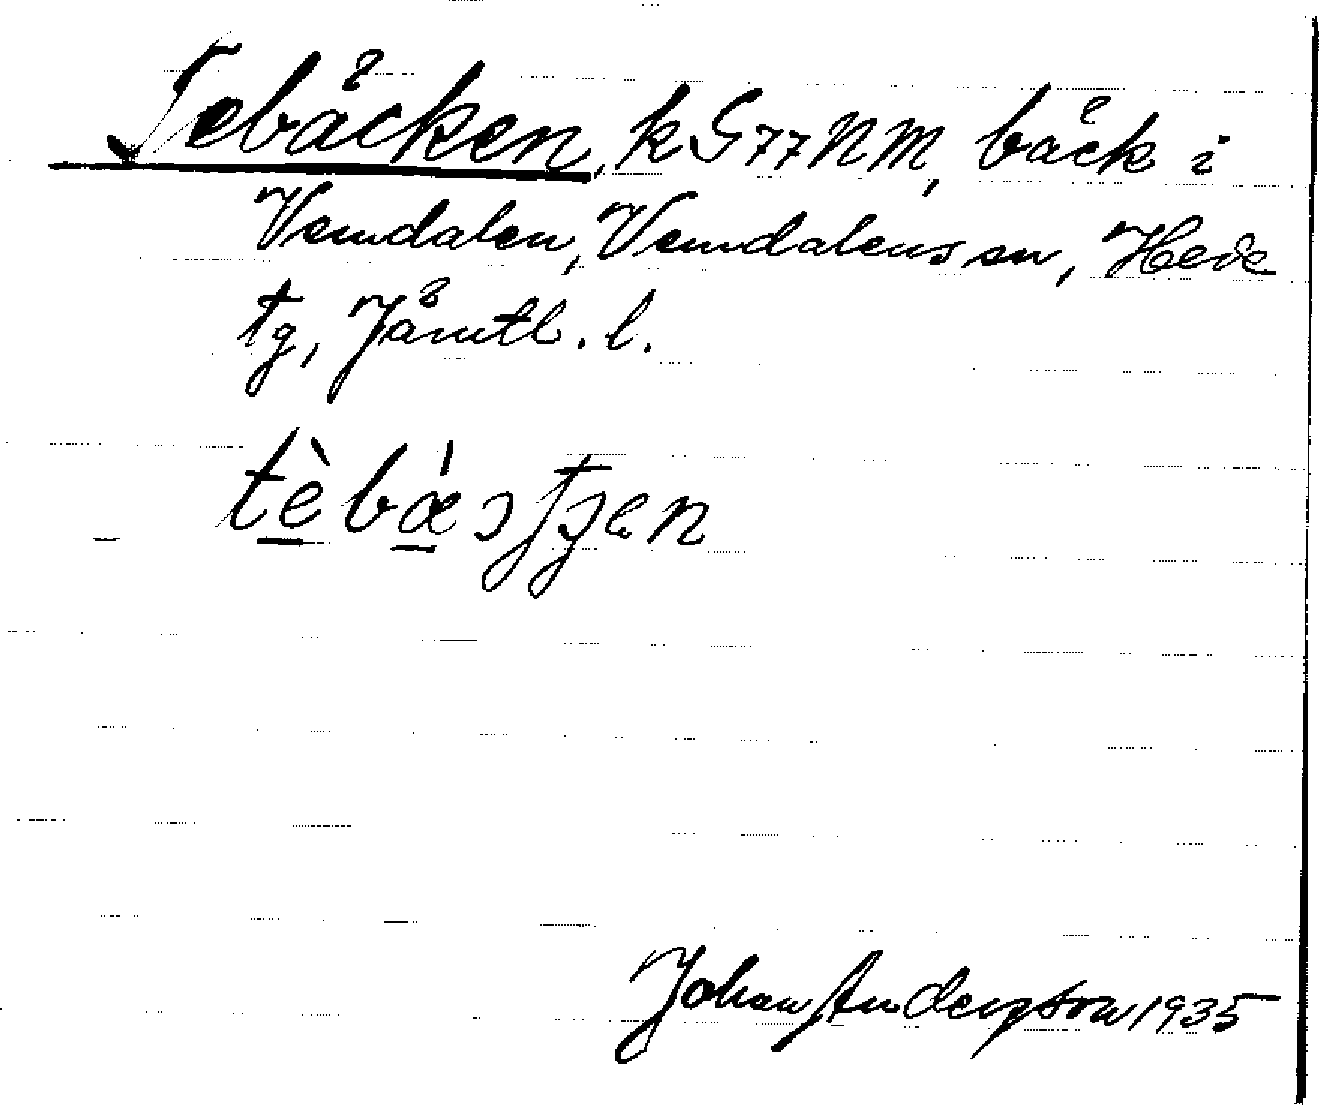 Tebäcken, k G77NM, bäck i
Vemdalen, Vemdalens sn, Hede
tg, Jämtl. l.
tèbæ̀stʃen
Johan Anderson 1935